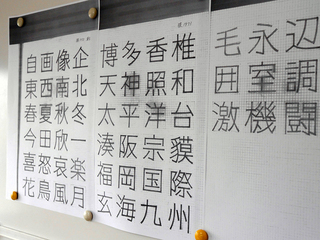 自画像企
東西南北
春夏秋冬
今田欣一
喜怒哀楽
花鳥風月
博多香椎
天神照和
太平洋台
湊阪宗貘
福岡国際
玄海九州
毛永辺
囲室調
激機闘